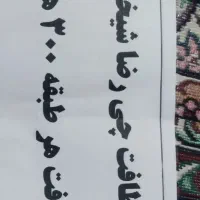 ظافت چی رضا شیخ
فت هر طبقه ۳۰۰